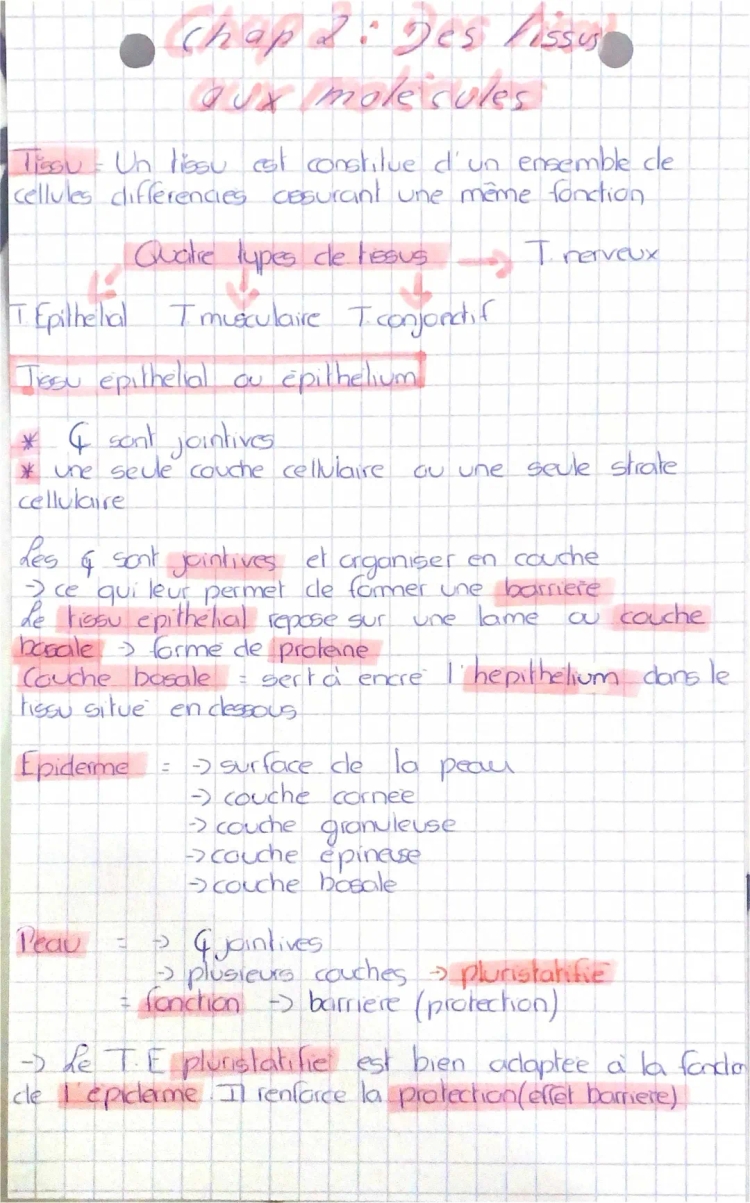 Chap 2 : Des tissus
aux molécules
Tissu = Un tissu est constitué d'un ensemble de
cellules différenciés assurant une même fonction
Quatre types de tissus → T. nerveux
T Epithelial T musculaire T. conjonctif
Tissu épithelial ou épithelium
* ₵ sont jointives
* une seule couche cellulaire ou une seule strate
cellulaire
Les ₵ sont jointives et organiser en couche
→ ce qui leur permet de former une barriere
Le tissu épithelial repose sur une lame ou couche
basale → formé de proteine
Couche basale = sert à encré l'hepithelium dans le
tissu situé en dessous
Epiderme = → surface de la peau
→ couche cornée
→ couche granuleuse
→ couche épineuse
→ couche basale
Peau = → ₵ jointives
→ plusieurs couches → pluristatifié
= fonction → barriere (protection)
→ Le T.E pluristatifié est bien adaptée à la fonctio
de l'épiderme. Il renforce la protection (effet barriere)